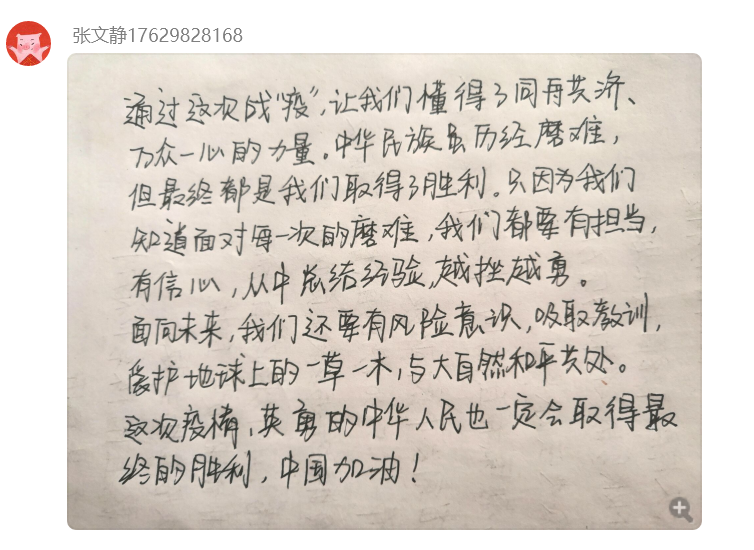 张文静17629828168
通过这次战“疫”,让我们懂得了同舟共济、
万众一心的力量。中华民族虽历经磨难,
但最终都是我们取得了胜利。只因为我们
知道面对每一次的磨难,我们都要有担当,
有信心,从中总结经验,越挫越勇。
面向未来,我们还要有风险意识,吸取教训,
爱护地球上的一草一木,与大自然和平共处。
这次疫情,英勇的中华人民也一定会取得最
终的胜利,中国加油!